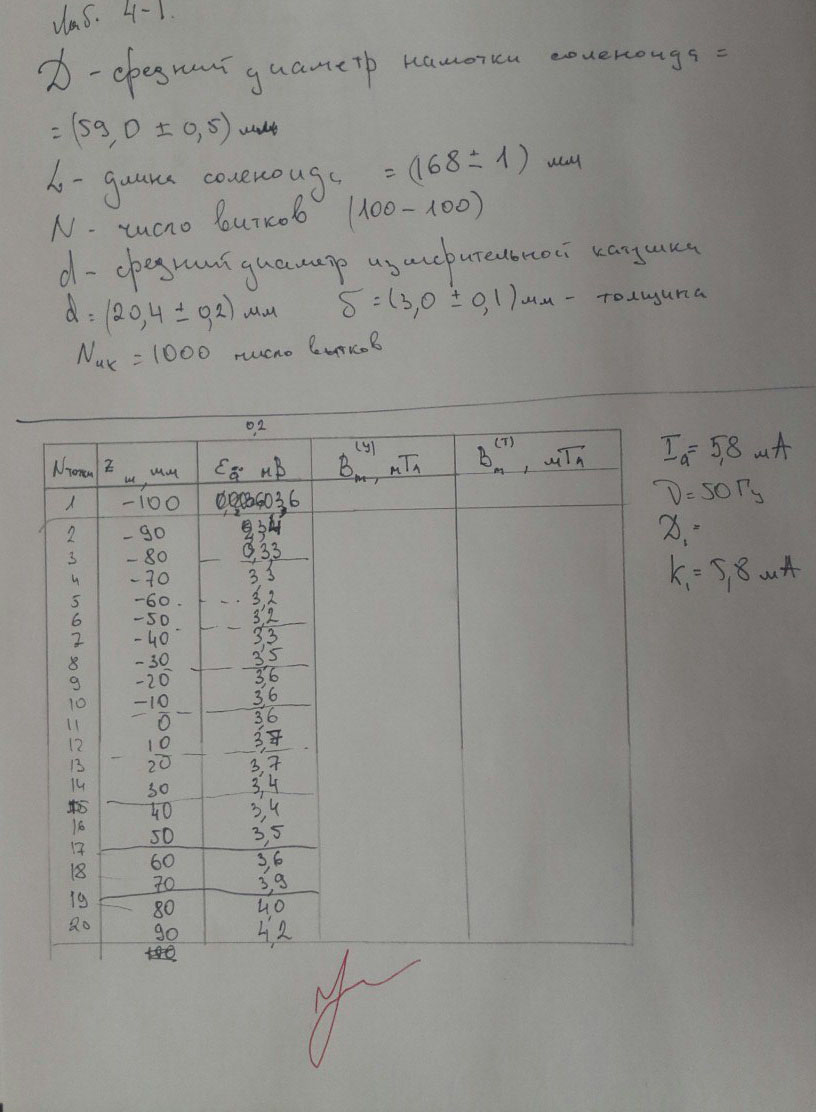 Лаб. 4-1.
D - средний диаметр намотки соленоида =
= (59,0 ± 0,5) мм
L - длина соленоида = (168 ± 1) мм
N - число витков (100 - 100)
d - средний диаметр измерительной катушки
d = (20,4 ± 0,2) мм δ = (3,0 ± 0,1) мм - толщина
Nик = 1000 число витков
0,2
N точки Z м, мм Ɛд, мВ Bm(У), мТл Bm(Т), мТл
1 -100
2 -90
3 -80 3,3
4 -70 3,3
5 -60 3,2
6 -50 3,2
7 -40 3,3
8 -30 3,5
9 -20 3,6
10 -10 3,6
11 0 3,6
12 10 3,7
13 20 3,7
14 30 3,4
15 40 3,4
16 50 3,5
17 60 3,6
18 70 3,9
19 80 4,0
20 90 4,2
Iд = 5,8 мА
ν = 50 Гц
D1 =
k1 = 5,8 мА